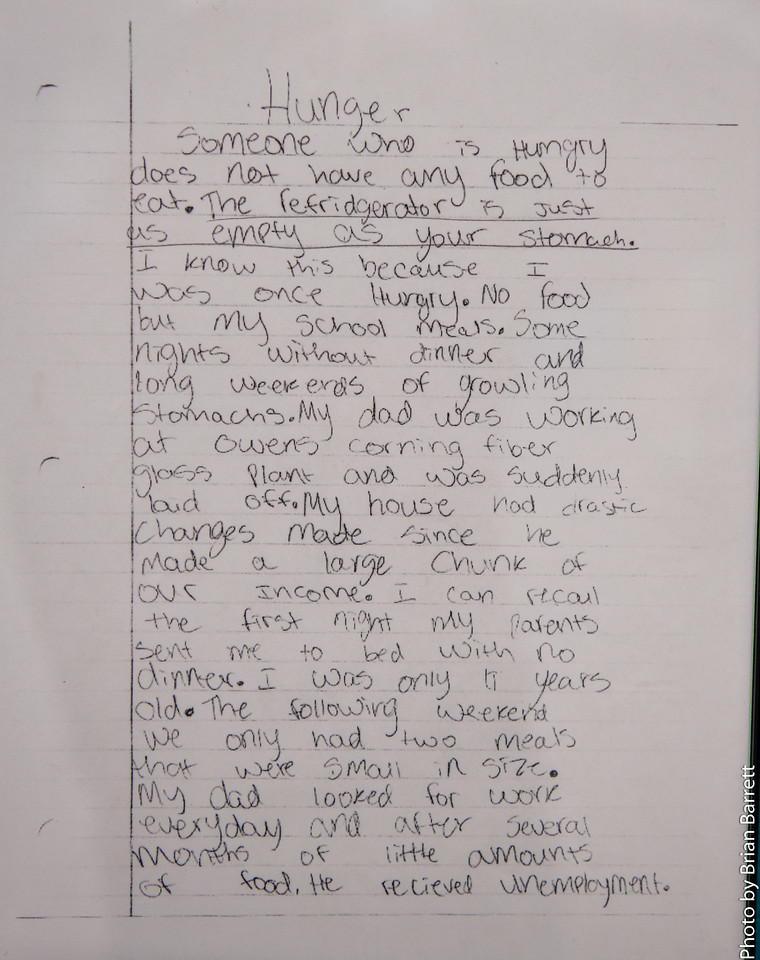 Hunger
Someone who is Hungry
does not have any food to
eat. The refridgerator is just
as empty as your stomach.
I know this because I
was once Hungry. No food
but my school meals. Some
nights without dinner and
long weekends of growling
stomachs. My dad was working
at Owens corning fiber
glass plant and was suddenly
laid off. My house had drastic
changes made since he
made a large chunk of
our income. I can recall
the first night my parents
sent me to bed with no
dinner. I was only 11 years
old. The following weekend
we only had two meals
that were small in size.
My dad looked for work
everyday and after several
months of little amounts
of food, He recieved unemployment.
Photo by Brian Barrett